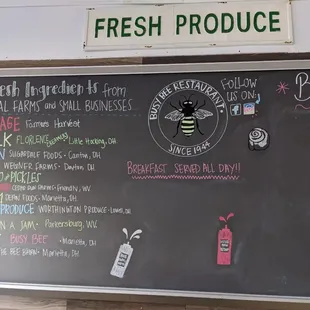 FRESH PRODUCE
Fresh Ingredients from
AL FARMS and SMALL BUSINESSES...
AGE Farmers Harvest
LK FLORENCE Little Hocking, OH
SUGARDALE FOODS - Canton, OH
WEBNER FARMS - Dayton, OH
+ PICKLES
FARMS - Friendly, WV
DEAN FOODS - Marietta, OH
PRODUCE WORTHINGTON PRODUCE
N A JAM - Parkersburg, WV
BUSY BEE - Marietta, OH
THE BEE BARN - Marietta, OH
BUSY BEE RESTAURANT
SINCE 1944
FOLLOW
US ON:
BREAKFAST SERVED ALL DAY!!